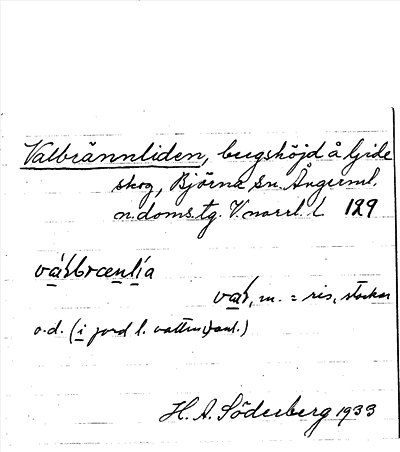 Valbrännliden, bergshöjd å Ljide
skog, Björna sn. Ångerml.
n. doms. tg. V. norrl. L 129
válbrænlía
val, m. = ris, stockar
o.d. (i jord l. vattn)
H. A. Söderberg 1933